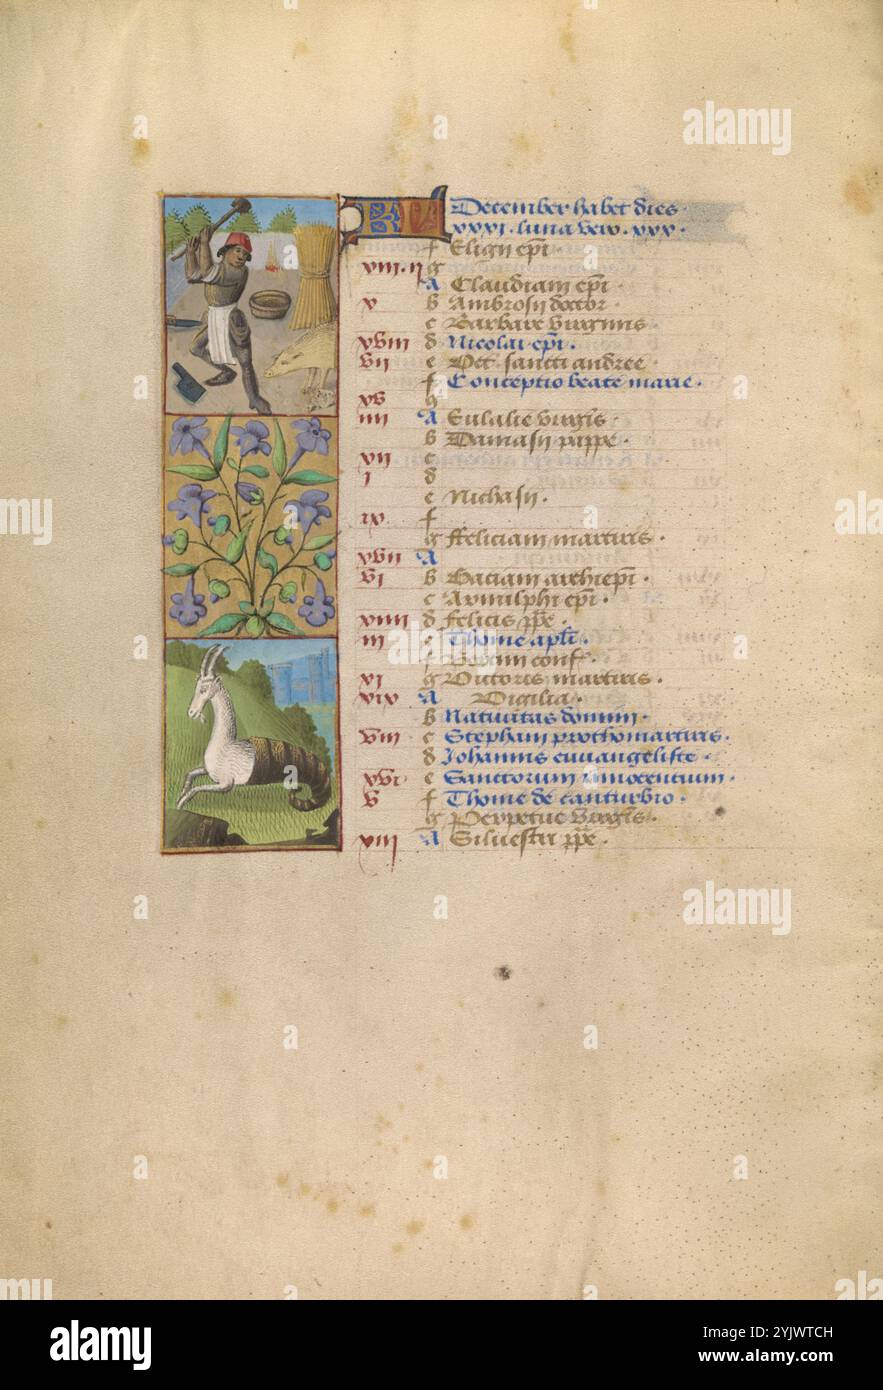 KL December habet dies
xxxi. luna vero. xxx.
f Eligii epi
viii. N g
A Claudiani epi
v b Ambrosii doctor
c Barbare virginis
xviii d Nicolai epi
vii e Oct sancti andree
f Conceptio beate marie
xv g
iiii A Eulalie virgis
b Damasii pappe
xii c
i d
e Nichasii
ix f
g ffeliciani martiris
xvii A
vi b Gaciani archiepi
c Arnulphi epi
xiiii d felicis ppe
iii e Thome apli
f conf
xi g Victoris martiris
xix A Vigilia
b Nativitas domini
viii c Stephani prothomartiris
d Johannis euuangeliste
xvi e Sanctorum innocentium
v f Thome de canturbio
g Perpetue virgis
xiii A Silvestri ppe
a
alamy
Image ID: 2YJWTCH
www.alamy.com